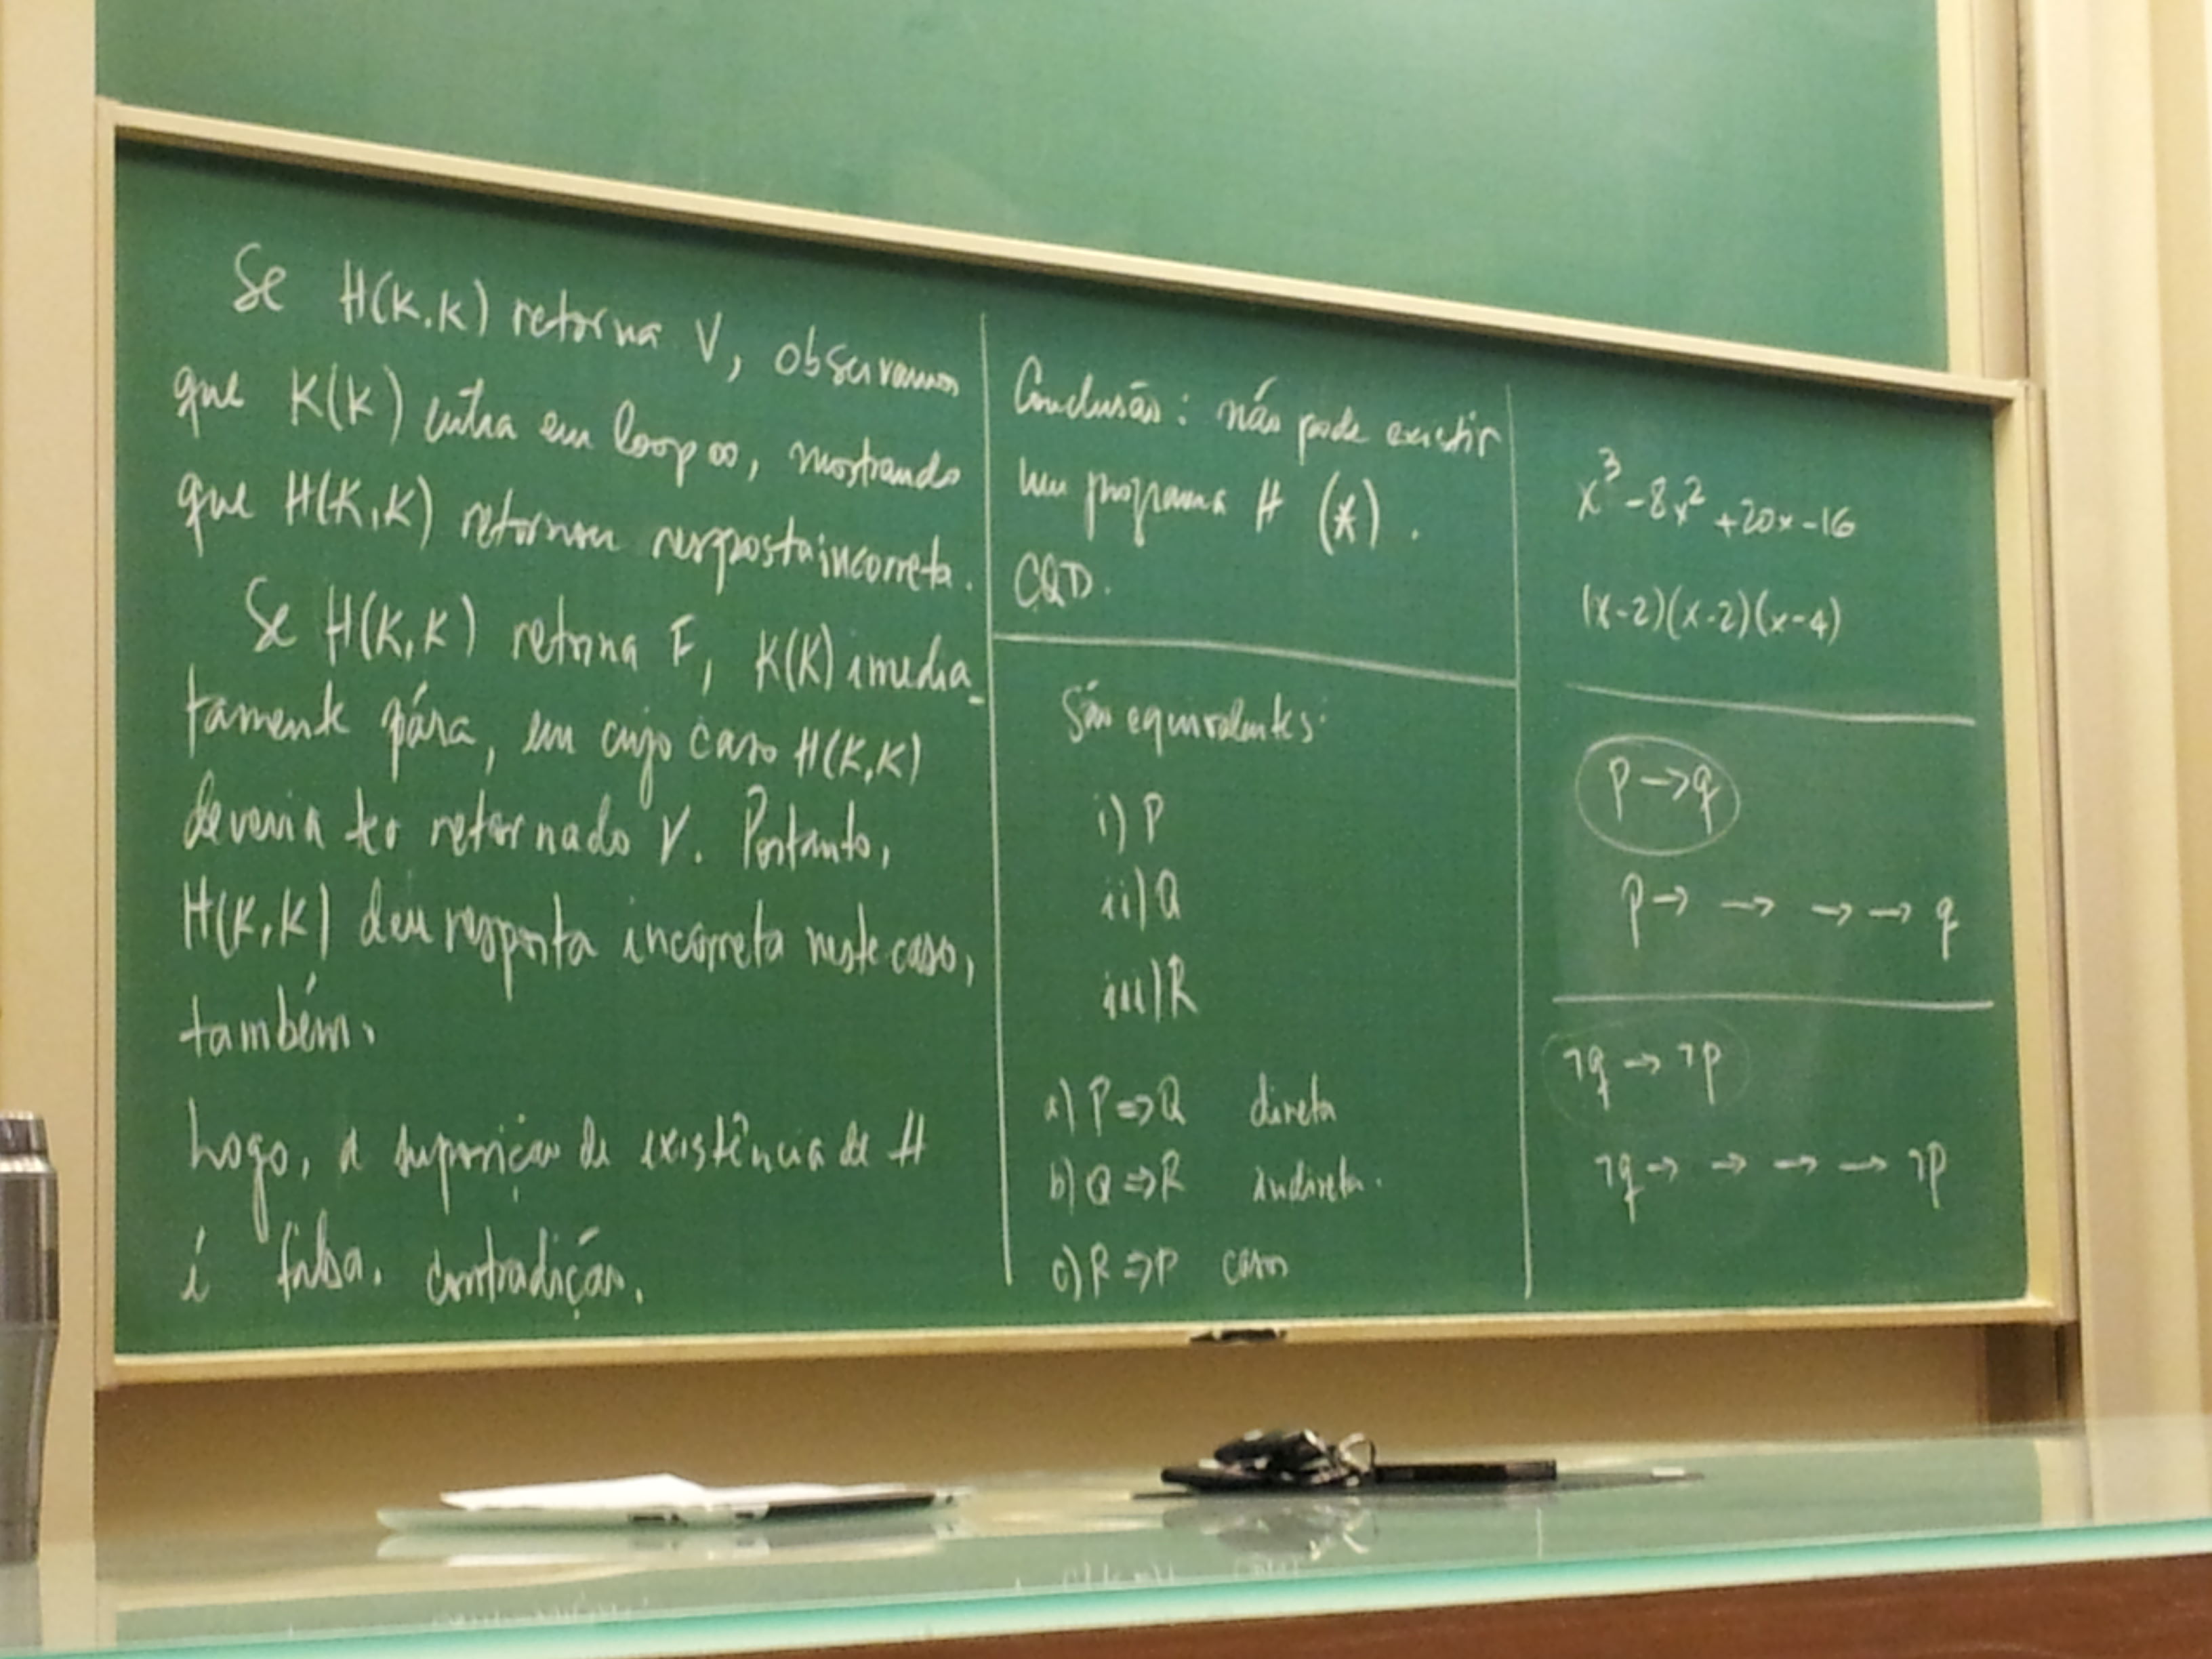 Se H(K,K) retorna V, observamos
que K(K) entra em loop ∞, mostrando
que H(K,K) retornou resposta incorreta.
Se H(K,K) retorna F, K(K) imedia-
tamente pára, em cujo caso H(K,K)
deveria ter retornado V. Portanto,
H(K,K) deu resposta incorreta neste caso,
também.
Logo, a suposição de existência de H
é falsa. contradição.
Conclusão: não pode existir
um programa H (*).
CQD.
São equivalentes:
i) P
ii) Q
iii) R
a) P ⇒ Q direta
b) Q ⇒ R indireta.
c) R ⇒ P casos
x³ - 8x² + 20x - 16
(x-2)(x-2)(x-4)
p → q
p → → → → q
¬q → ¬p
¬q → → → → ¬p